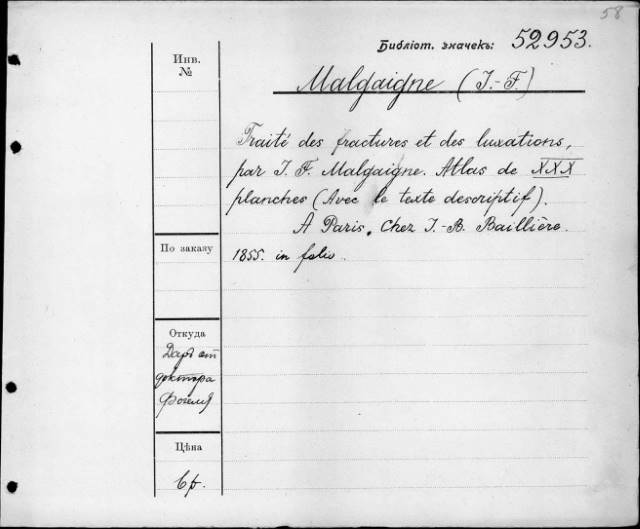 58
Библіот. значекъ: 52953.
Инв.
№
Malgaigne (J.-F.)
Traité des fractures et des luxations,
par J. F. Malgaigne. Atlas de XXX
planches (Avec le texte descriptif).
A Paris, Chez J.-B. Baillière.
1855. in folio.
По заказу
Откуда
Даръ от
доктора
Фогеля
Цѣна
6 р.